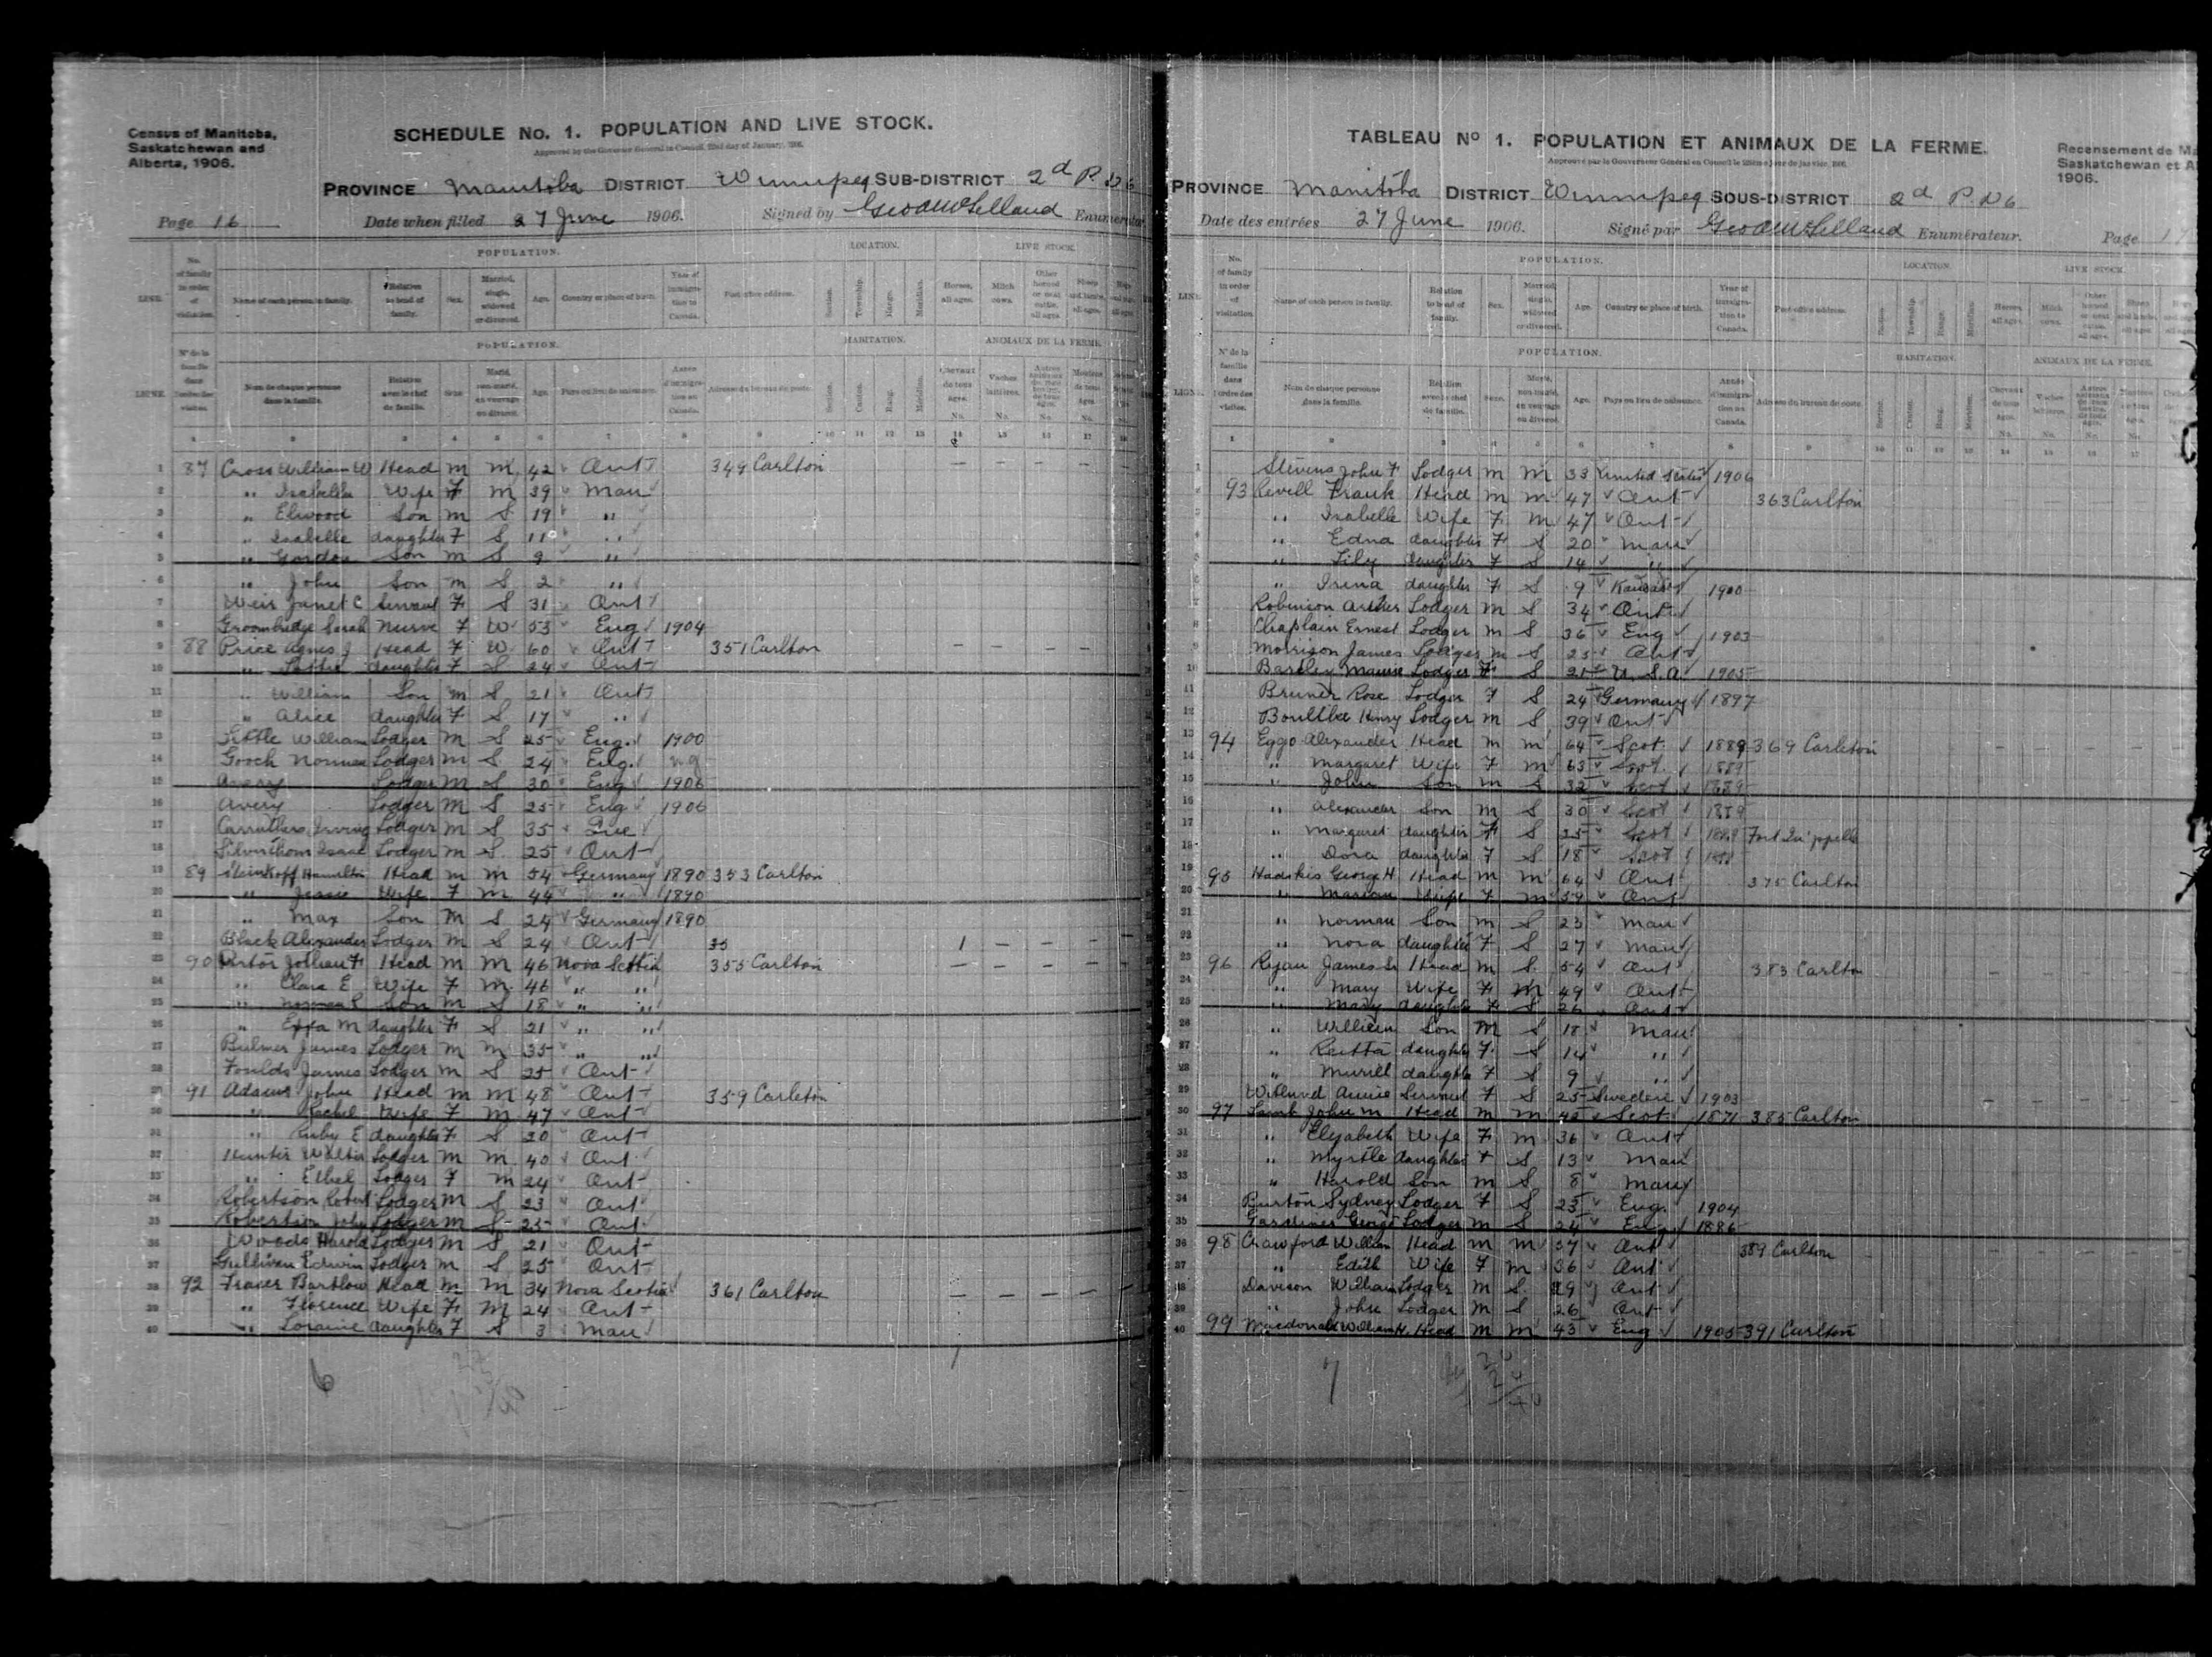 Census of Manitoba,
Saskatchewan and
Alberta, 1906.
SCHEDULE No. 1. POPULATION AND LIVE STOCK.
PROVINCE Manitoba DISTRICT Winnipeg SUB-DISTRICT 2d P. No 6
Page 16 Date when filled 27 June 1906. Signed by Enumerator
POPULATION. LOCATION. LIVE STOCK.
POPULATION. HABITATION. ANIMAUX DE LA FERME.
1 87 Cross William W Head M M 42 Ont 349 Carlton
2 " Isabella Wife F M 39 Man
3 " Elwood Son M S 19 "
4 " Isabelle daughter F S 11 "
5 " Gordon Son M S 9 "
6 " John Son M S 2 "
7 Weir Janet C Servant F S 31 Ont
8 Groombridge Sarah Nurse F W 53 Eng 1904
9 88 Price Agnes J Head F W 60 Ont 351 Carlton
10 " Lottie daughter F S 24 Ont
11 " William Son M S 21 Ont
12 " Alice daughter F S 17 "
13 Little William Lodger M S 25 Eng. 1900
14 Gooch Norman Lodger M S 24 Eng.
15 Avery Lodger M S 30 Eng 1906
16 Avery Lodger M S 25 Eng 1906
17 Carruthers Irving Lodger M S 35 Que
18 Silverthorn Isaac Lodger M S 25 Ont
19 89 Steinkopf Hamilton Head M M 54 Germany 1890 353 Carlton
20 " Jessie Wife F M 44 " 1890
21 " Max Son M S 24 Germany 1890
22 Black Alexander Lodger M S 24 Ont 35 1 – – – –
23 90 Head M M 46 Nova Scotia 355 Carlton
24 " Clara E Wife F M 46 " "
25 " Norman R Son M S 18 " "
26 " M daughter F S 21 " "
27 Bulmer James Lodger M M 35 " "
28 Foulds James Lodger M S 25 Ont
29 91 Adams John Head M M 48 Ont 359 Carleton
30 " Rachel Wife F M 47 Ont
31 " Ruby E daughter F S 20 Ont
32 Hunter Walter Lodger M M 40 Ont
33 " Ethel Lodger F M 24 Ont
34 Robertson Robert Lodger M S 23 Ont
35 Robertson John Lodger M S 25 Ont
36 Woods Harold Lodger M S 21 Ont
37 Gulliven Edwin Lodger M S 25 Ont
38 92 Fraser Bartlow Head M M 34 Nova Scotia 361 Carlton
39 " Florence Wife F M 24 Ont
40 " Loraine daughter F S 3 Man
6
TABLEAU No 1. POPULATION ET ANIMAUX DE LA FERME.
Recensement de
Saskatchewan et
1906.
PROVINCE Manitoba DISTRICT Winnipeg SOUS-DISTRICT 2d P. No 6
Date des entrées 27 June 1906. Signé par Enumérateur. Page 17
POPULATION. LOCATION. LIVE STOCK.
POPULATION. HABITATION. ANIMAUX DE LA FERME.
1 Stevens John F Lodger M M 33 United States 1906
2 93 Revell Frank Head M M 47 Ont 363 Carlton
3 " Isabelle Wife F M 47 Ont
4 " Edna daughter F S 20 Man
5 " Lily daughter F S 14 "
6 " Irena daughter F S 9 Kansas 1900
7 Robinson Arther Lodger M S 34 Ont
8 Chaplain Ernest Lodger M S 36 Eng 1903
9 Morrison James Lodger M S 25 Ont
10 Lodger F S 21 U.S.A 1905
11 Bruner Rose Lodger F S 24 Germany 1897
12 Boultbee Henry Lodger M S 39 Ont
13 94 Eggo Alexander Head M M 64 Scot 1889 369 Carleton
14 " Margaret Wife F M 63 Scot. 1889
15 " John Son M S 32 Scot 1889
16 " Alexander Son M S 30 Scot 1889
17 " Margaret daughter F S 25 Scot 1889 Fort Qu'appelle
18 " Dora daughter F S 18 Scot
19 95 George H Head M M 64 Ont 375 Carlton
20 " Marion Wife F M 59 Ont
21 " Norman Son M S 23 Man
22 " Nora daughter F S 27 Man
23 96 Ryan James Sr Head M S 54 Ont 383 Carlton
24 " Mary Wife F M 49 Ont
25 " Mary daughter F S 26 Ont
26 " William Son M S 18 Man
27 " Reitta daughter F S 14 "
28 " Murill daughter F S 9 "
29 Annie Servant F S 25 Sweden 1903
30 97 Lamb John M Head M M 42 Scot 1871 385 Carlton
31 " Elyabeth Wife F M 36 Ont
32 " Myrtle daughter F S 13 Man
33 " Harold Son M S 8 Man
34 Burton Sydney Lodger F S 25 Eng. 1904
35 Gardiner George Lodger M S 24 Eng. 1886
36 98 Crawford William Head M M 37 Ont 389 Carlton
37 " Edith Wife F M 36 Ont
38 Davison William Lodger M S 29 Ont
39 " John Lodger M S 26 Ont
40 99 Macdonald William H. Head M M 43 Eng 1905 391 Carlton
7